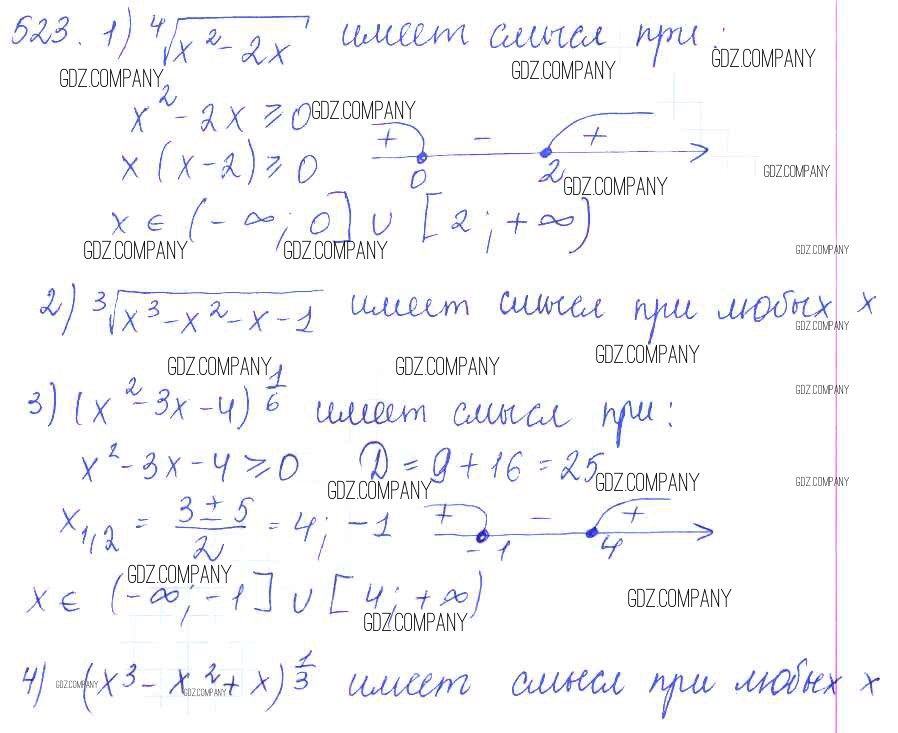 523. 1) ⁴√(x² - 2x) имеет смысл при:
GDZ.COMPANY GDZ.COMPANY GDZ.COMPANY
x² - 2x ≥ 0 GDZ.COMPANY
x(x-2) ≥ 0 + - +
0 2 GDZ.COMPANY GDZ.COMPANY
x ∈ (-∞; 0] ∪ [2; +∞)
GDZ.COMPANY GDZ.COMPANY GDZ.COMPANY
2) ³√(x³-x²-x-1) имеет смысл при любых x
GDZ.COMPANY
GDZ.COMPANY GDZ.COMPANY GDZ.COMPANY
GDZ.COMPANY
3) (x²-3x-4)^(1/6) имеет смысл при:
x²-3x-4 ≥ 0 D = 9+16 = 25
GDZ.COMPANY GDZ.COMPANY GDZ.COMPANY
x₁,₂ = (3±5)/2 = 4; -1 + - +
-1 4
GDZ.COMPANY
x ∈ (-∞; -1] ∪ [4; +∞) GDZ.COMPANY
GDZ.COMPANY
4) (x³-x²+x)^(1/3) имеет смысл при любых x
GDZ.COMPANY GDZ.COMPANY